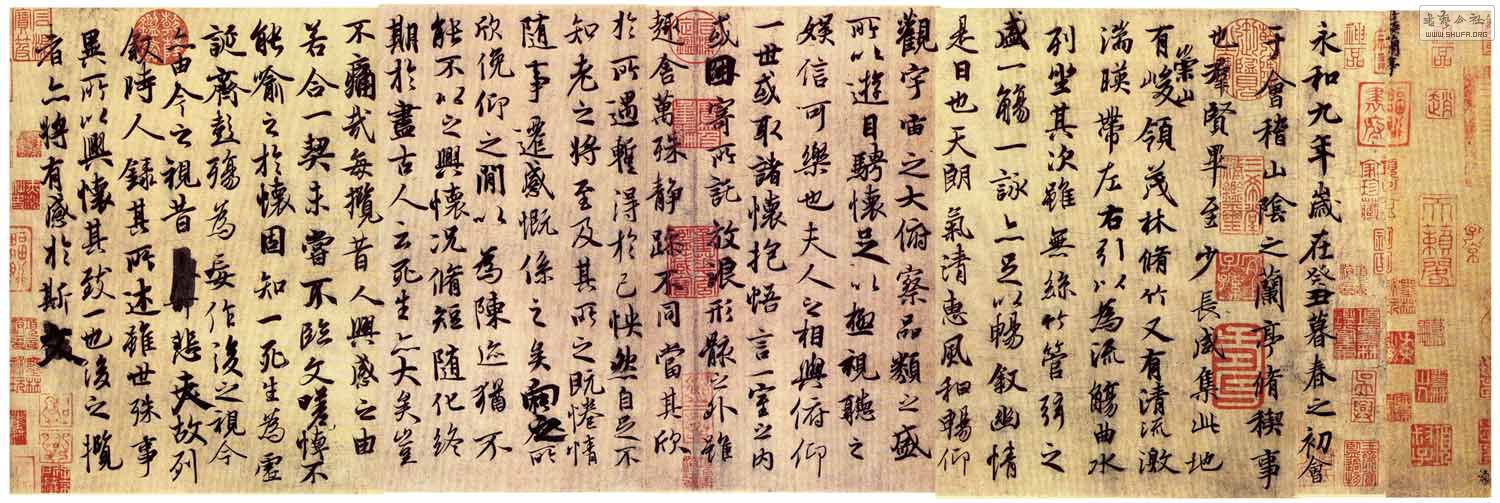 WWW.SHUFA.ORG
永和九年歲在癸丑暮春之初會
于會稽山陰之蘭亭脩稧事
也羣賢畢至少長咸集此地
有崇山峻領茂林脩竹又有清流激
湍暎帶左右引以為流觴曲水
列坐其次雖無絲竹管弦之
盛一觴一詠亦足以暢叙幽情
是日也天朗氣清惠風和暢仰
觀宇宙之大俯察品類之盛
所以遊目騁懷足以極視聽之
娛信可樂也夫人之相與俯仰
一世或取諸懷抱悟言一室之內
或因寄所託放浪形骸之外雖
趣舍萬殊靜躁不同當其欣
於所遇暫得於己怏然自足不
知老之將至及其所之既惓情
隨事遷感慨係之矣向之所
欣俛仰之閒以為陳迹猶不
能不以之興懷況脩短隨化終
期於盡古人云死生亦大矣豈
不痛哉每攬昔人興感之由
若合一契未嘗不臨文嗟悼不
能喻之於懷固知一死生為虛
誕齊彭殤為妄作後之視今
亦由今之視昔悲夫故列
叙時人錄其所述雖世殊事
異所以興懷其致一也後之攬
者亦將有感於斯文